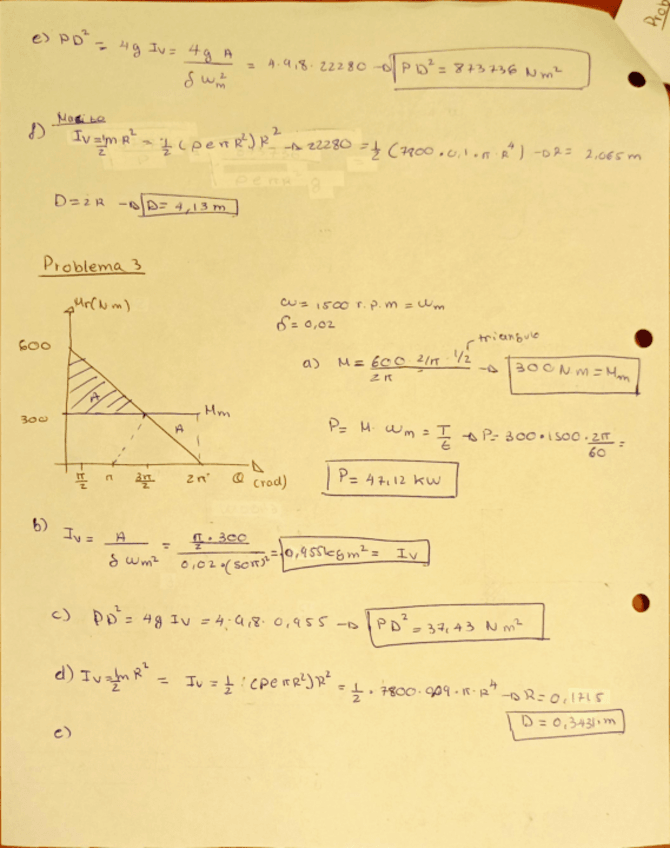 e) PD² = 4g Iv = 4g A / δ wm² = 4·9,8·22280 → PD² = 873736 Nm²
f) Maciza
Iv = 1/2 m R² = 1/2 (ρ e π R²) R² → 22280 = 1/2 (7800 · 0,1 · π · R⁴) → R = 2,065 m
D = 2R → D = 4,13 m
Problema 3
Mr (Nm)
600
300
A
A
Mm
π/2 π 3π/2 2π θ (rad)
ω = 1500 r.p.m = ωm
δ = 0,02
triangulo
a) M = 600 · 2π · 1/2 / 2π → 300 Nm = Mm
P = M · ωm = T/t → P = 300 · 1500 · 2π/60 =
P = 47,12 kW
b) Iv = A / δ ωm² = π/2 · 300 / 0,02 · (50π)² = 0,955 kg m² = Iv
c) PD² = 4g Iv = 4·9,8·0,955 → PD² = 37,43 Nm²
d) Iv = 1/2 m R² = Iv = 1/2 · (ρ e π R²) R² = 1/2 · 7800 · · π · R⁴ → R = 0,1715
D = 0,3431 m
e)
Prob